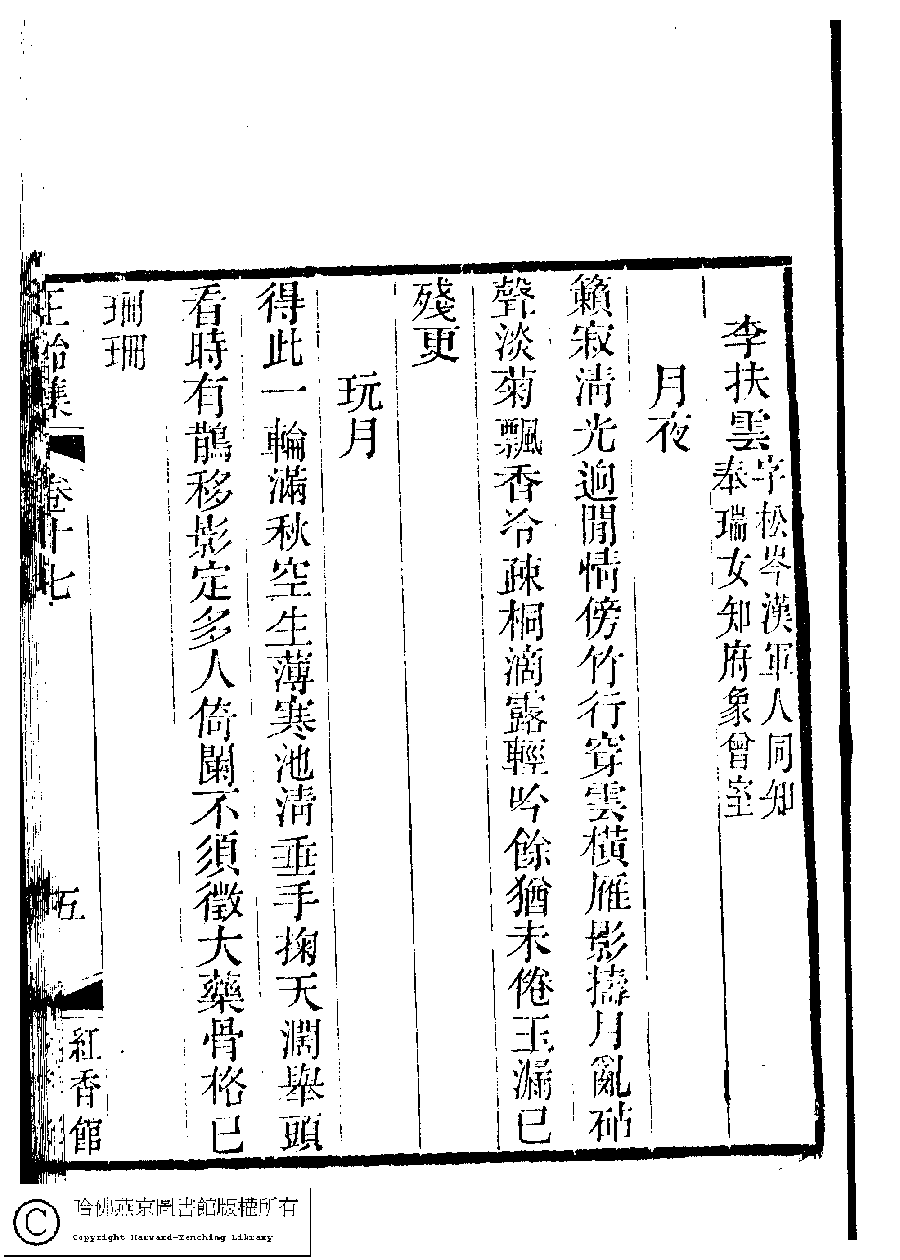 李扶雲字松岑漢軍人同知
奉瑞女知府象曾室
月夜
籟寂淸光逈閒情傍竹行穿雲橫雁影擣月亂砧
聲淡菊飄香冷疎桐滴露輕吟餘猶未倦玉漏已
殘更
玩月
得此一輪滿秋空生薄寒池淸垂手掬天濶舉頭
看時有鵲移影定多人倚闌不須徵大藥骨格已
珊珊
正始集
卷十七
五
紅香館
哈佛燕京圖書館版權所有
Copyright Harvard-Yenching Library